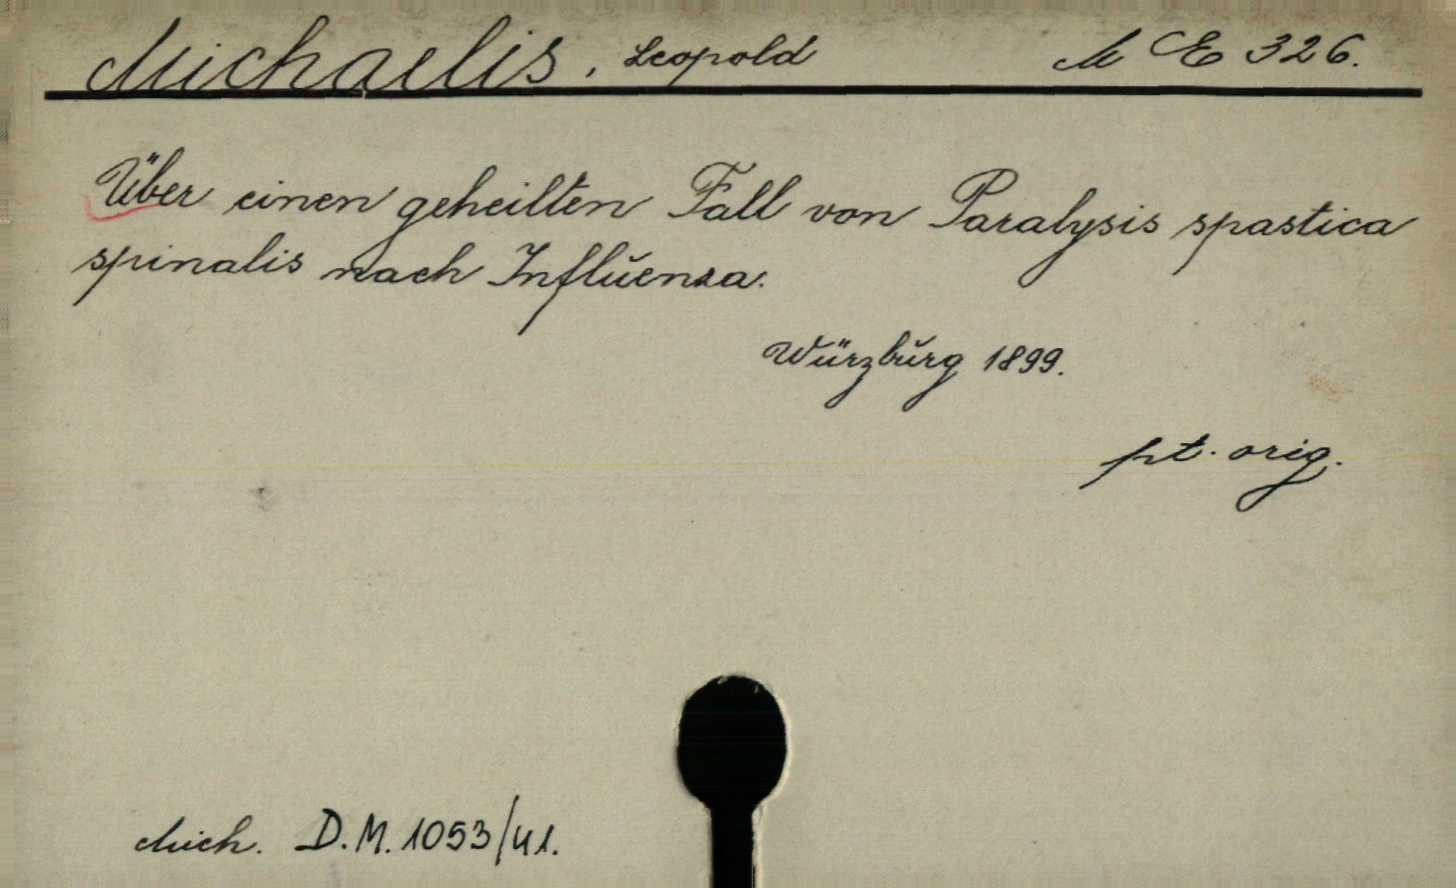 Michaelis, Leopold M E 326.
Über einen geheilten Fall von Paralysis spastica
spinalis nach Influenza.
Würzburg 1899.
pt. orig.
Mich. D.M. 1053/41.